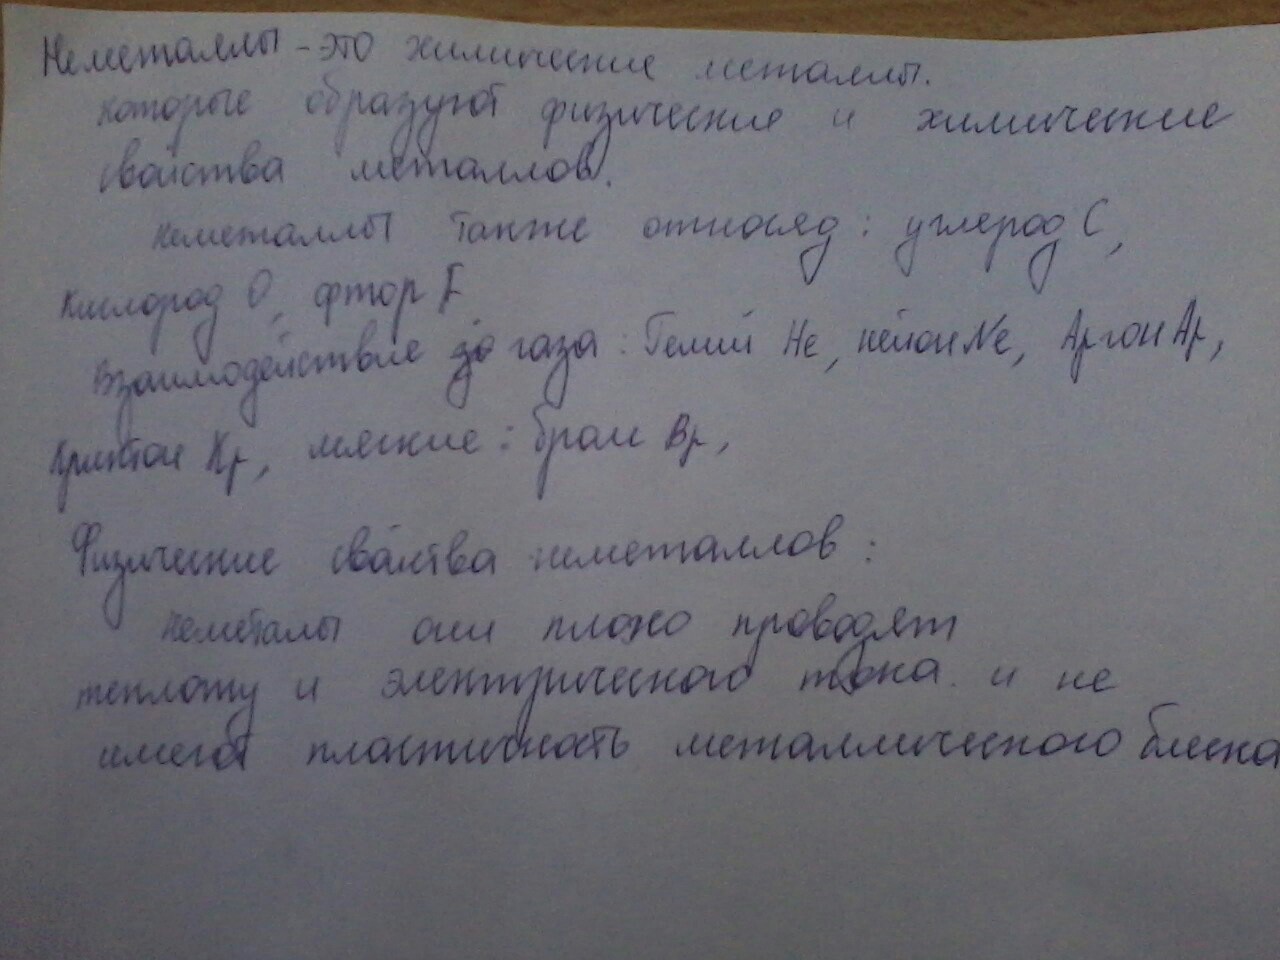 Неметаллы - это химические металлы.
которые образуют физические и химические
свойства металлов.
неметаллы также относяд: углерод C,
Кислород O, фтор F
Взаимодействие до газа: Гелий He, неион Ne, Аргон Ar,
Криптон Kr, мягкие: бром Br,
Физические свойства неметаллов:
неметалы они плохо проводят
теплоту и электрического тока и не
имеют пластичность металлического блеска